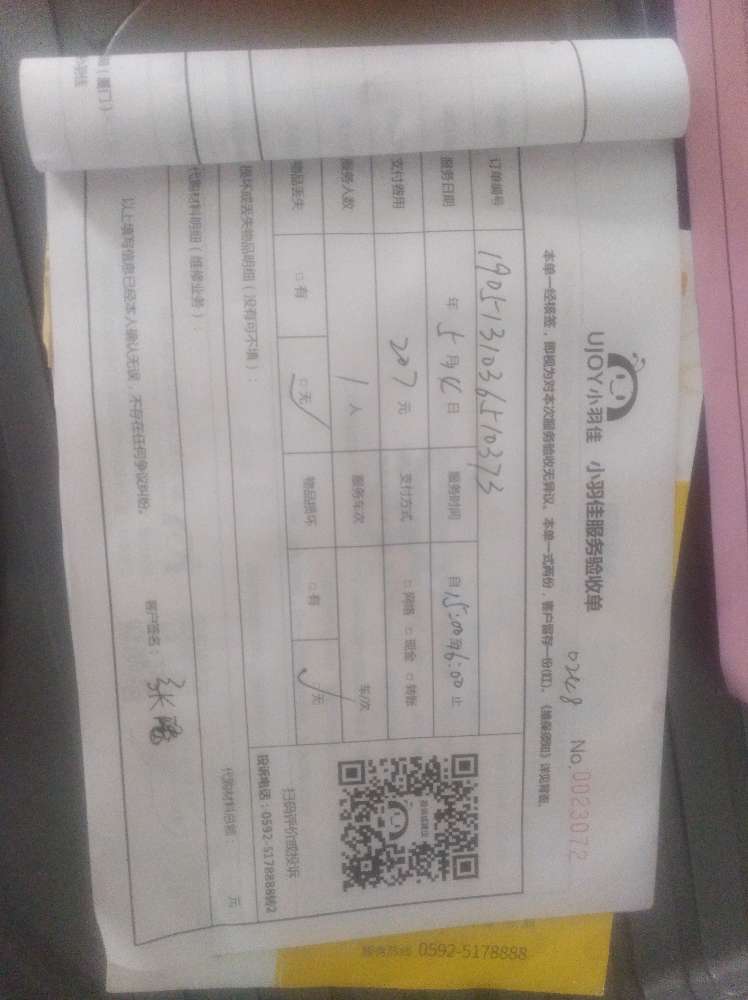 UJOY小羽佳 小羽佳服务验收单
No.0023072
本单一经核签，即视为对本次服务验收无异议。本单一式两份，客户留存一份(红)。《维保须知》详见背表。
订单编号 190513103651037３
服务日期 年 5月14日 服务时间 自15:00至16:00止
支付费用 207元 支付方式 □网络 □现金 □转账
服务人数 1人 服务车次 车/次
物品丢失 □有 □无✓ 物品损坏 □有 □无✓
损坏或丢失物品明细（没有可不填）：
代购材料明细（维修业务）：
代购材料总额： 元
以上填写信息已经本人确认无误，不存在任何争议纠纷。
客户签名：张
扫码评价或投诉
投诉电话：0592-5178888转2
（厦门）
0592-5178888